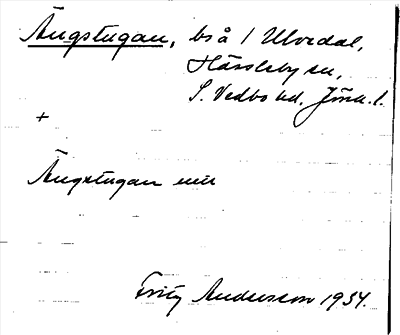 Ängstugan, bså 1 Ulvedal,
Hässleby sn,
S. Vedbo hd, Jönk. l.
+
Ängstugan
Fritz Andersson 1934.